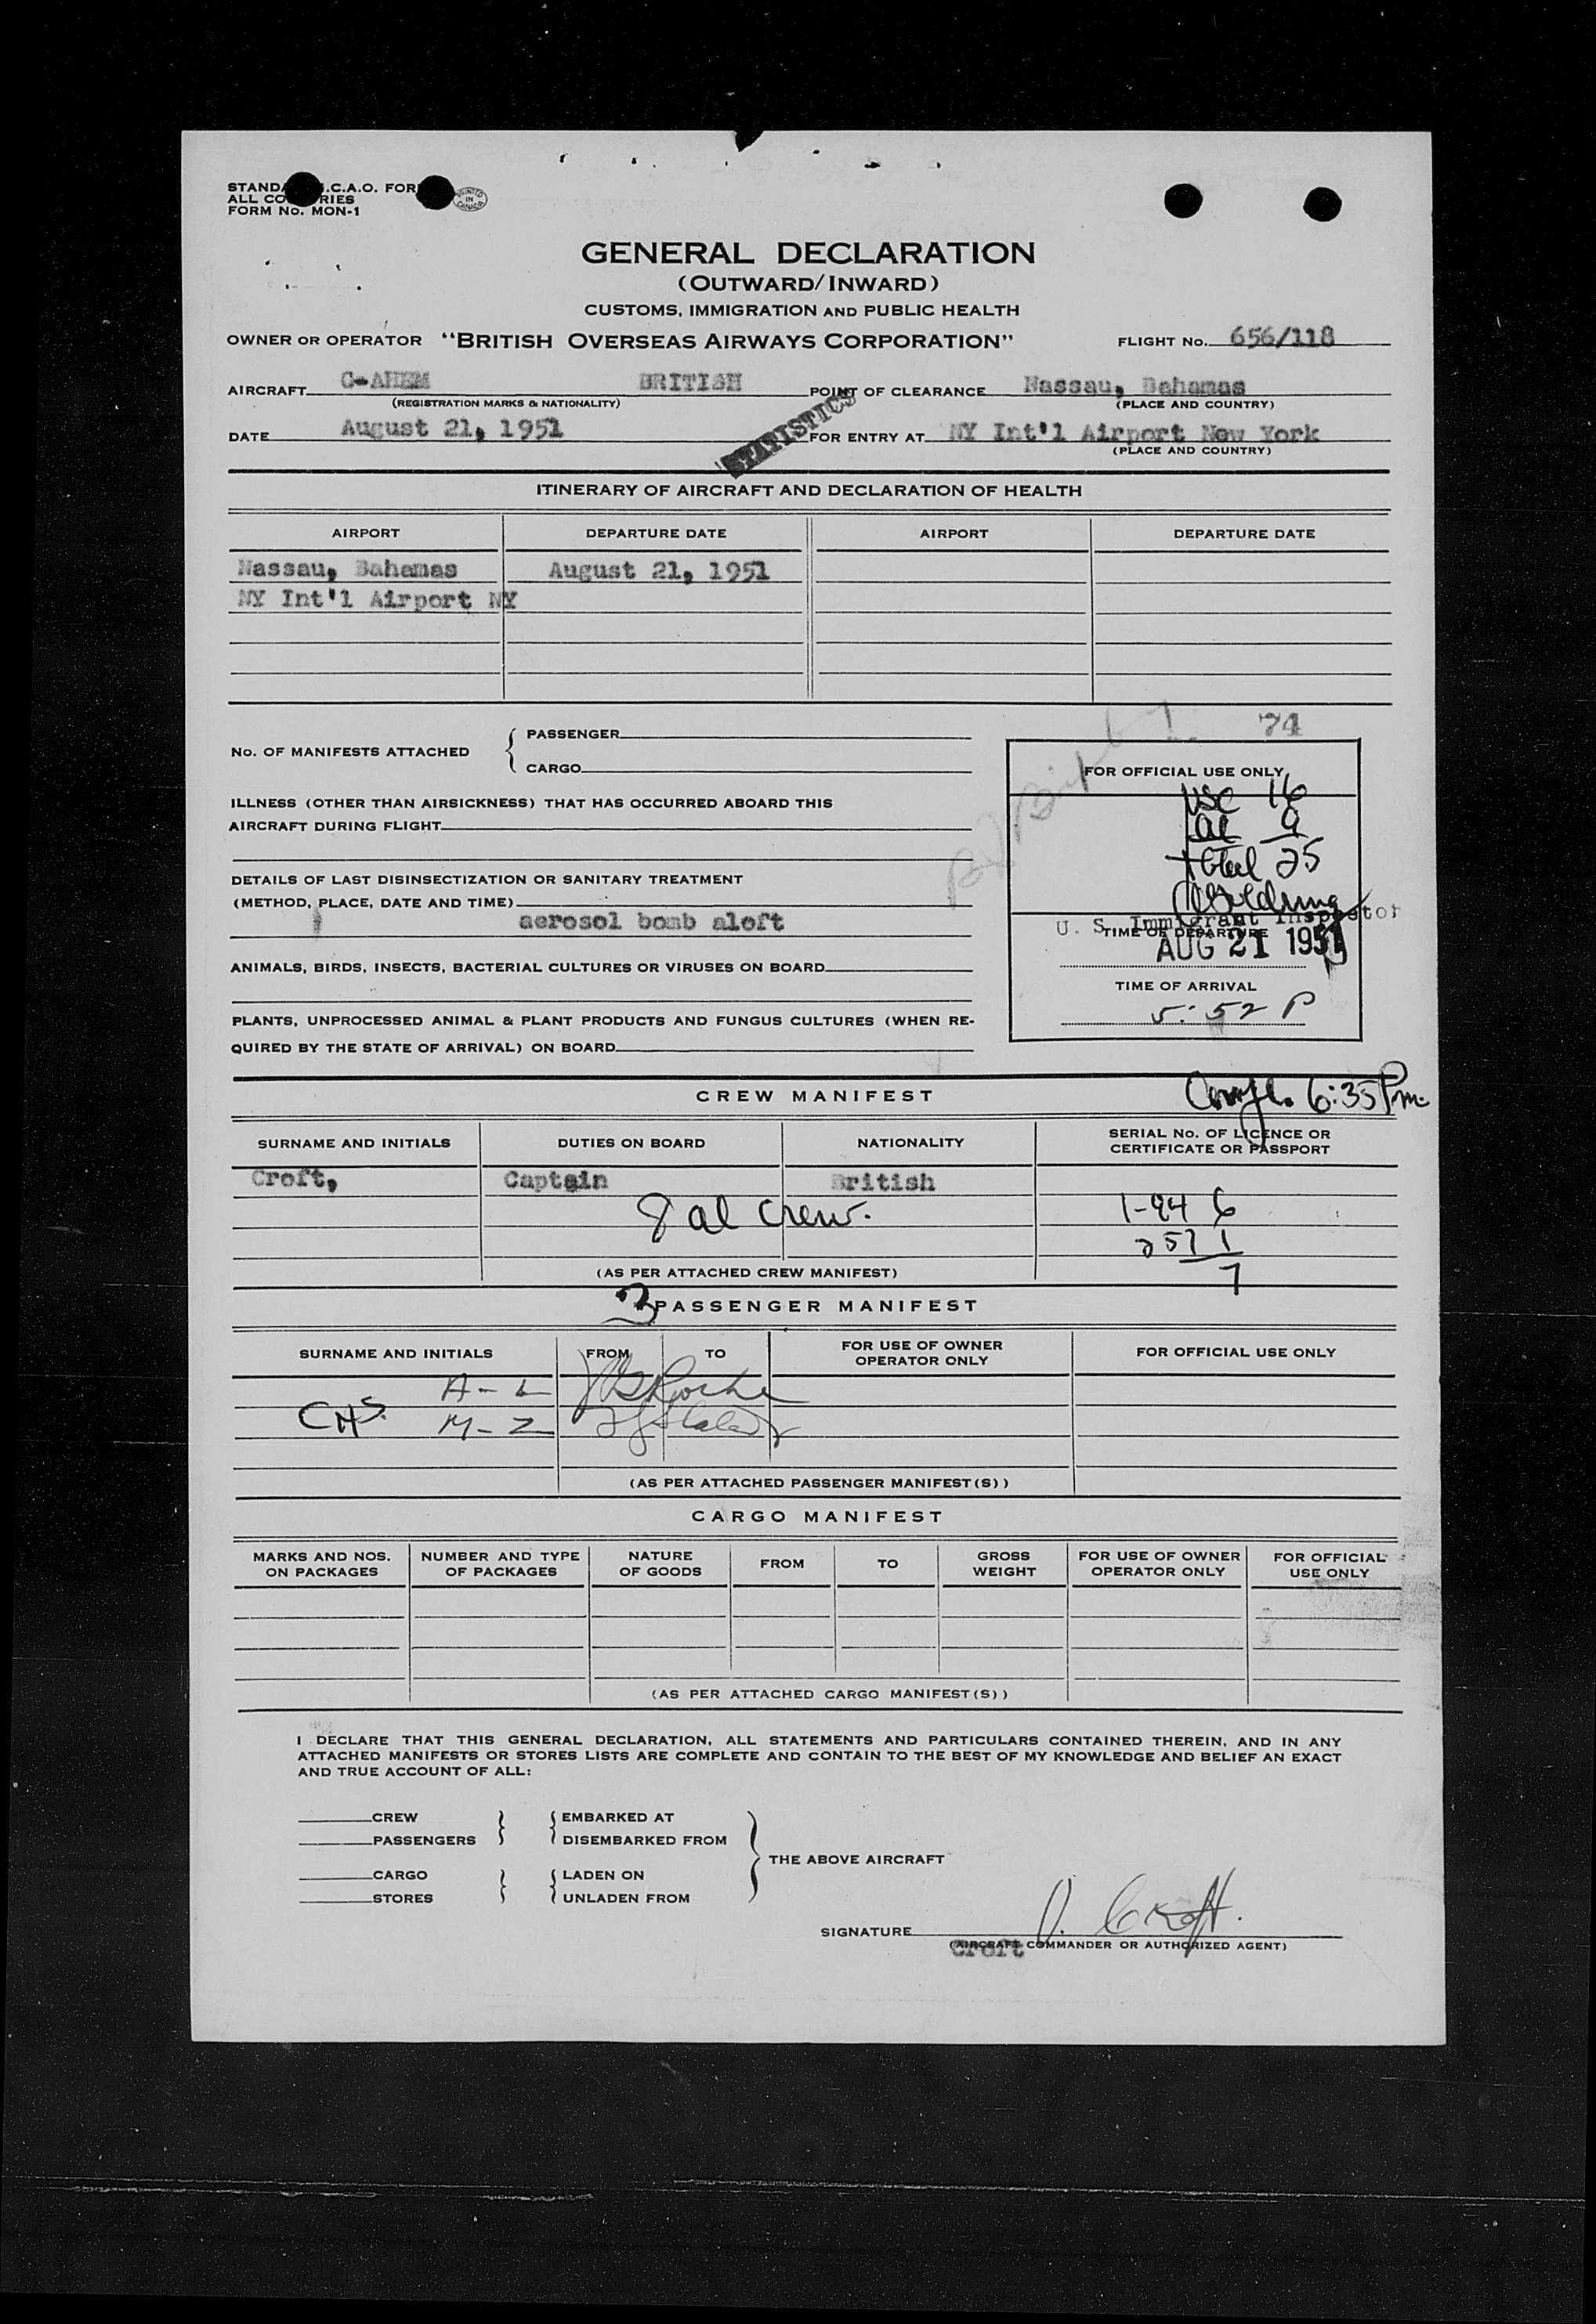 STANDA .C.A.O. FOR
ALL CO RIES
FORM No. MON-1
PRINTED IN CANADA
GENERAL DECLARATION
(OUTWARD/INWARD)
CUSTOMS, IMMIGRATION AND PUBLIC HEALTH
OWNER OR OPERATOR "BRITISH OVERSEAS AIRWAYS CORPORATION" FLIGHT No. 656/118
AIRCRAFT G-AHEM BRITISH POINT OF CLEARANCE Nassau, Bahamas
(REGISTRATION MARKS & NATIONALITY) (PLACE AND COUNTRY)
STATISTICS
DATE August 21, 1951 FOR ENTRY AT NY Int'l Airport New York
(PLACE AND COUNTRY)
ITINERARY OF AIRCRAFT AND DECLARATION OF HEALTH
AIRPORT DEPARTURE DATE AIRPORT DEPARTURE DATE
Nassau, Bahamas August 21, 1951
NY Int'l Airport NY
74
No. OF MANIFESTS ATTACHED { PASSENGER
CARGO
FOR OFFICIAL USE ONLY
USC 16
al 9
total 25
U. S. Immigrant Inspector
TIME OF DEPARTURE
AUG 21 1951
TIME OF ARRIVAL
5:52 P
ILLNESS (OTHER THAN AIRSICKNESS) THAT HAS OCCURRED ABOARD THIS
AIRCRAFT DURING FLIGHT
DETAILS OF LAST DISINSECTIZATION OR SANITARY TREATMENT
(METHOD, PLACE, DATE AND TIME)
aerosol bomb aloft
ANIMALS, BIRDS, INSECTS, BACTERIAL CULTURES OR VIRUSES ON BOARD
PLANTS, UNPROCESSED ANIMAL & PLANT PRODUCTS AND FUNGUS CULTURES (WHEN RE-
QUIRED BY THE STATE OF ARRIVAL) ON BOARD
CREW MANIFEST
6:35 Pm.
SURNAME AND INITIALS DUTIES ON BOARD NATIONALITY SERIAL No. OF LICENCE OR
CERTIFICATE OR PASSPORT
Croft, Captain British
8 al crew. 1-94 6
257 1
7
(AS PER ATTACHED CREW MANIFEST)
3
PASSENGER MANIFEST
SURNAME AND INITIALS FROM TO FOR USE OF OWNER
OPERATOR ONLY FOR OFFICIAL USE ONLY
A-L
CHS. M-Z
(AS PER ATTACHED PASSENGER MANIFEST(S))
CARGO MANIFEST
MARKS AND NOS.
ON PACKAGES NUMBER AND TYPE
OF PACKAGES NATURE
OF GOODS FROM TO GROSS
WEIGHT FOR USE OF OWNER
OPERATOR ONLY FOR OFFICIAL
USE ONLY
(AS PER ATTACHED CARGO MANIFEST(S))
I DECLARE THAT THIS GENERAL DECLARATION, ALL STATEMENTS AND PARTICULARS CONTAINED THEREIN, AND IN ANY
ATTACHED MANIFESTS OR STORES LISTS ARE COMPLETE AND CONTAIN TO THE BEST OF MY KNOWLEDGE AND BELIEF AN EXACT
AND TRUE ACCOUNT OF ALL:
CREW EMBARKED AT
PASSENGERS DISEMBARKED FROM
THE ABOVE AIRCRAFT
CARGO LADEN ON
STORES UNLADEN FROM
SIGNATURE Croft.
(AIRCRAFT COMMANDER OR AUTHORIZED AGENT)
Croft